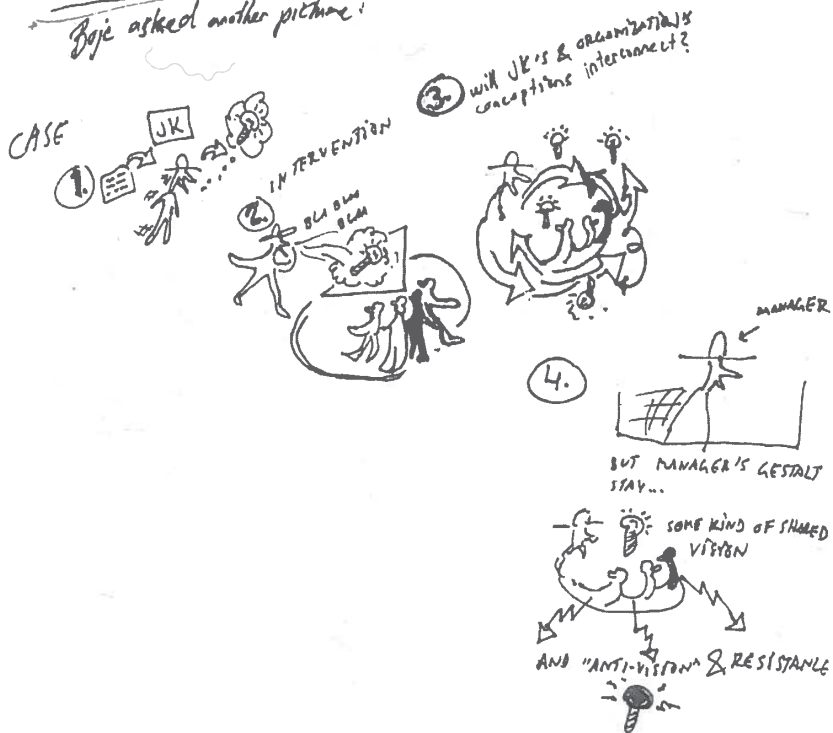 Boje asked another picture!
CASE
1.
JK
2. INTERVENTION
BLA BLAA
BLAA
3. will JK's & ORGANIZATION'S
conceptions interconnect?
4.
MANAGER
BUT MANAGER'S GESTALT
STAY...
SOME KIND OF SHARED
VISION
AND "ANTI-VISION" & RESISTANCE